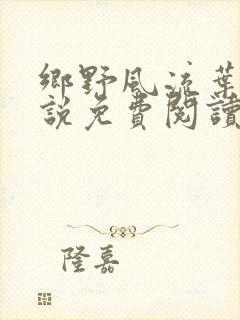 鄉野風流葉
說免費閱讀
隆嘉